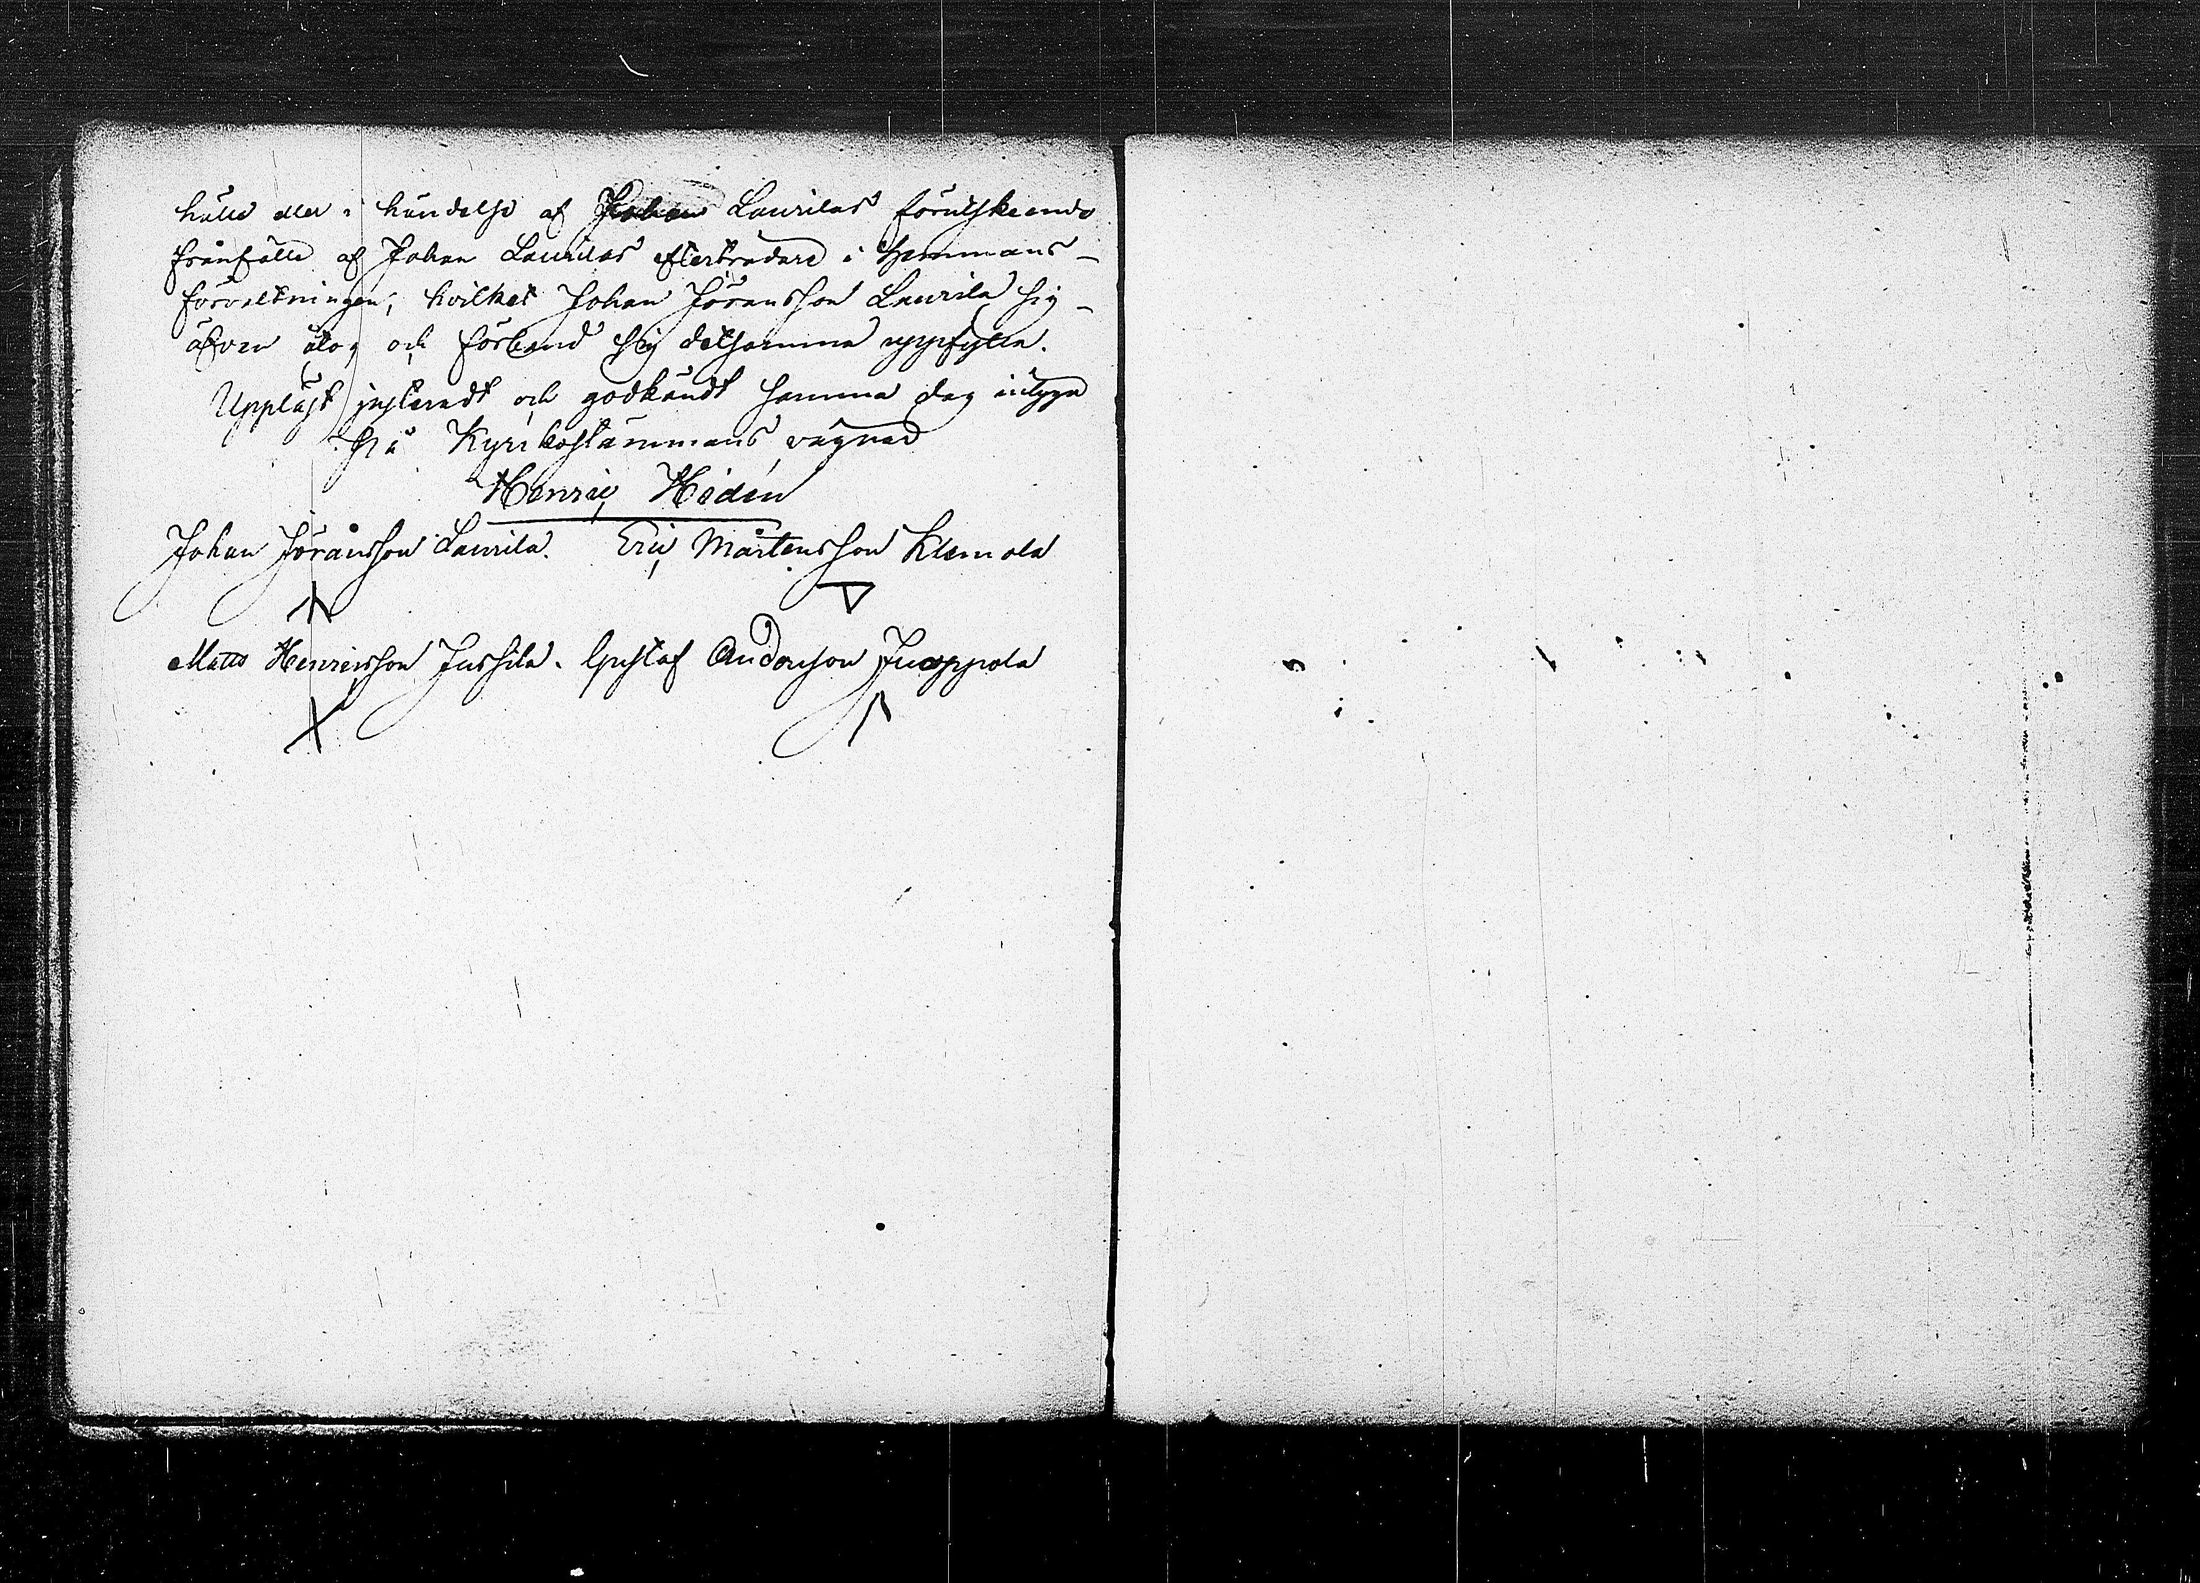 hålle eller i händelse af Johan Laurilas förutskeende
frånfälle af Johan Laurilas efterträdare i hemmans-
förvaltningen; hvilket Johan Jöransson Laurila sig
äfven åtog och förband sig detsamma uppfylla.
Uppläst justeradt och godkändt samma dag intyga
på Kyrkostämmans vägnar
Henric Hedén
Johan Jöransson Laurila. Eric Mårtensson Klemola
Matts Henricsson Jussila. Gustaf Andersson Juoppola